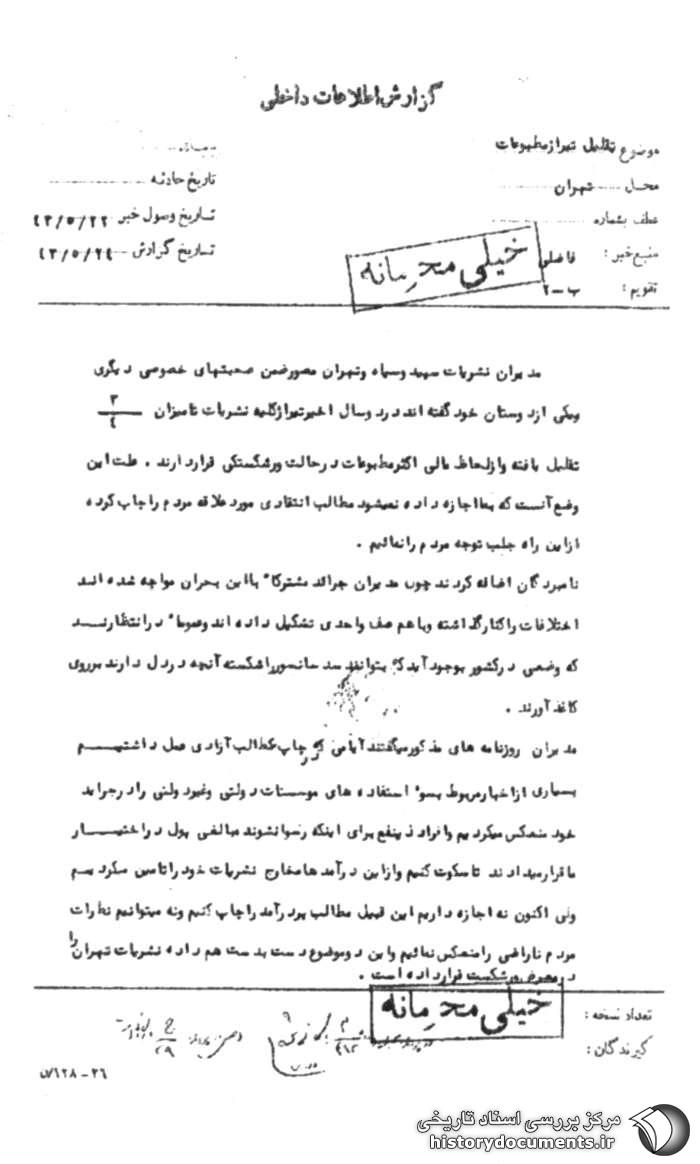 گزارش اطلاعات داخلی
موضوع تقلیل تیراژ مطبوعات
محل تهران
عطف بشماره
منبع خبر : فاضلی
تقویم : ب-۲
تاریخ حادثه
تاریخ وصول خبر ۴۳/۵/۲۲
تاریخ گزارش ۴۳/۵/۲۴
خیلی محرمانه
مدیران نشریات سپید و سیاه و تهران مصور ضمن صحبتهای خصوصی دیگری
و یکی از دوستان خود گفته اند در دو سال اخیر تیراژ کلیه نشریات تا میزان ۳/۴
تقلیل یافته و از لحاظ مالی اکثر مطبوعات در حالت ورشکستگی قرار دارند . علت این
وضع آنست که بما اجازه داده نمیشود مطالب انتقادی مورد علاقه مردم را چاپ کرده
از این راه جلب توجه مردم را نمائیم .
نامبردگان اضافه کردند چون مدیران جرائد مشترکا" با این بحران مواجه شده اند
اختلافات را کنار گذاشته و با هم صف واحدی تشکیل داده اند و عموما" در انتظارند
که وضعی در کشور بوجود آید که بتوانند سد سانسور را شکسته آنچه در دل دارند بر روی
کاغذ آورند .
مدیران روزنامه های مذکور میگفتند ایامی که در چاپ مطالب آزادی عمل داشتیم
بسیاری از اخبار مربوط بسوء استفاده های موسسات دولتی و غیر دولتی را در جراید
خود منعکس میکردیم و افراد ذینفع برای اینکه رسوا نشوند مبالغی پول در اختیار
ما قرار میدادند تا سکوت کنیم و از این درآمدها مخارج نشریات خود را تامین میکردیم
ولی اکنون نه اجازه داریم این قبیل مطالب پر درآمد را چاپ کنیم و نه میتوانیم نظرات
مردم ناراضی را منعکس نمائیم و این دو موضوع دست بدست هم داده نشریات تهران را
در معرض ورشکست قرار داده است .
خیلی محرمانه
تعداد نسخه :
گیرندگان :
۵/۱۲۸-۲۶
مرکز بررسی اسناد تاریخی
historydocuments.ir